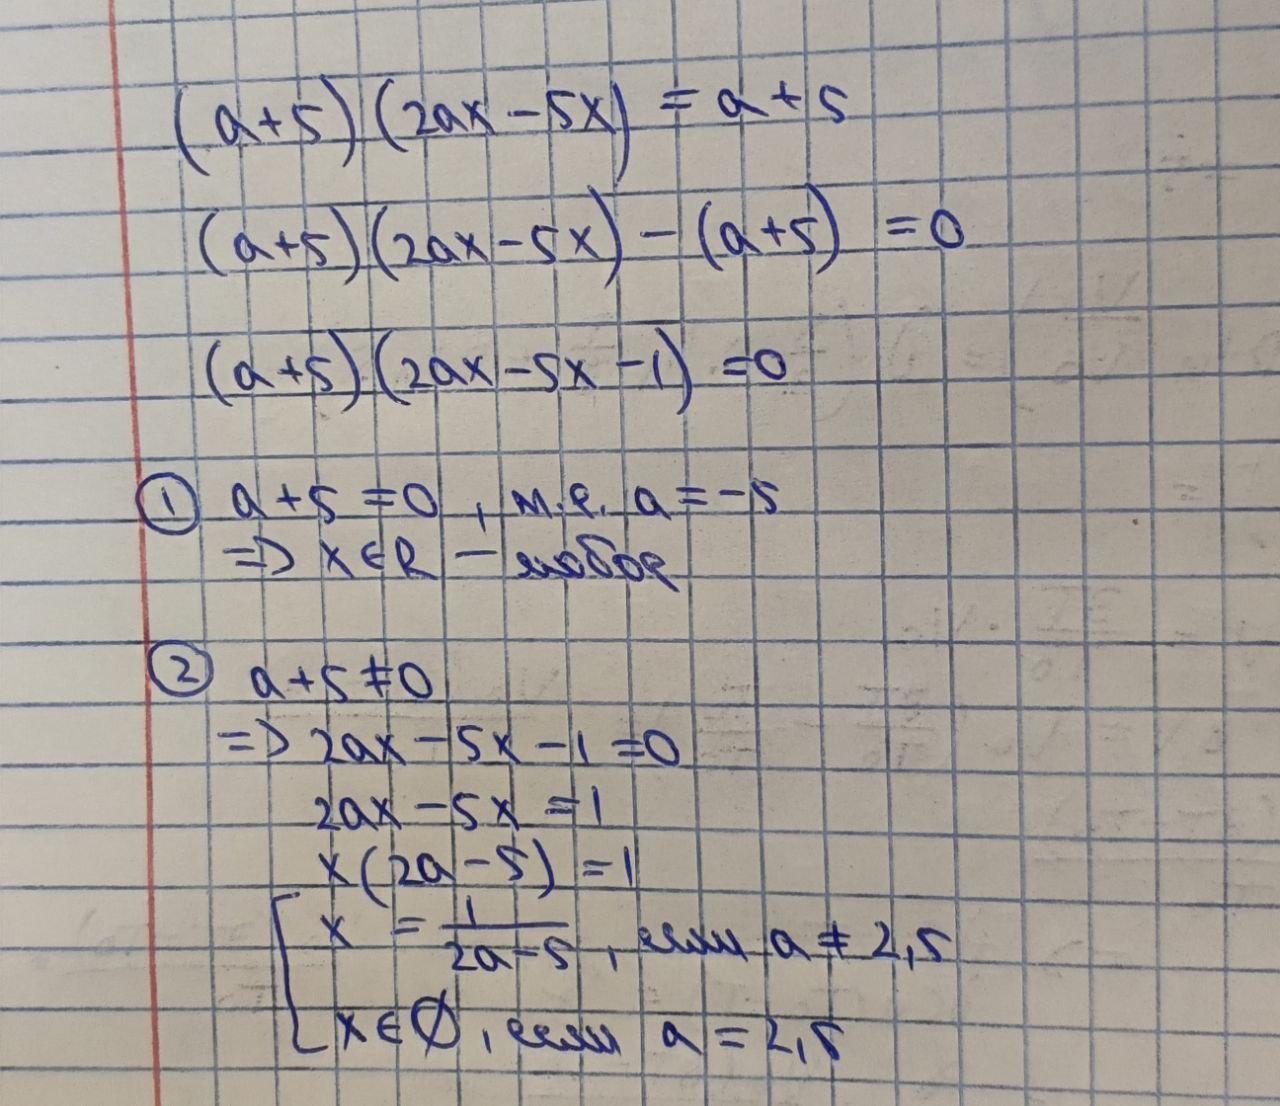 (a+5)(2ax-5x) = a+5
(a+5)(2ax-5x) - (a+5) = 0
(a+5)(2ax-5x-1) = 0
① a+5=0, т.е. a=-5
=> x∈R - любое
② a+5≠0
=> 2ax-5x-1=0
2ax-5x=1
x(2a-5)=1
[ x = 1/(2a-5), если a≠2,5
x∈∅, если a=2,5